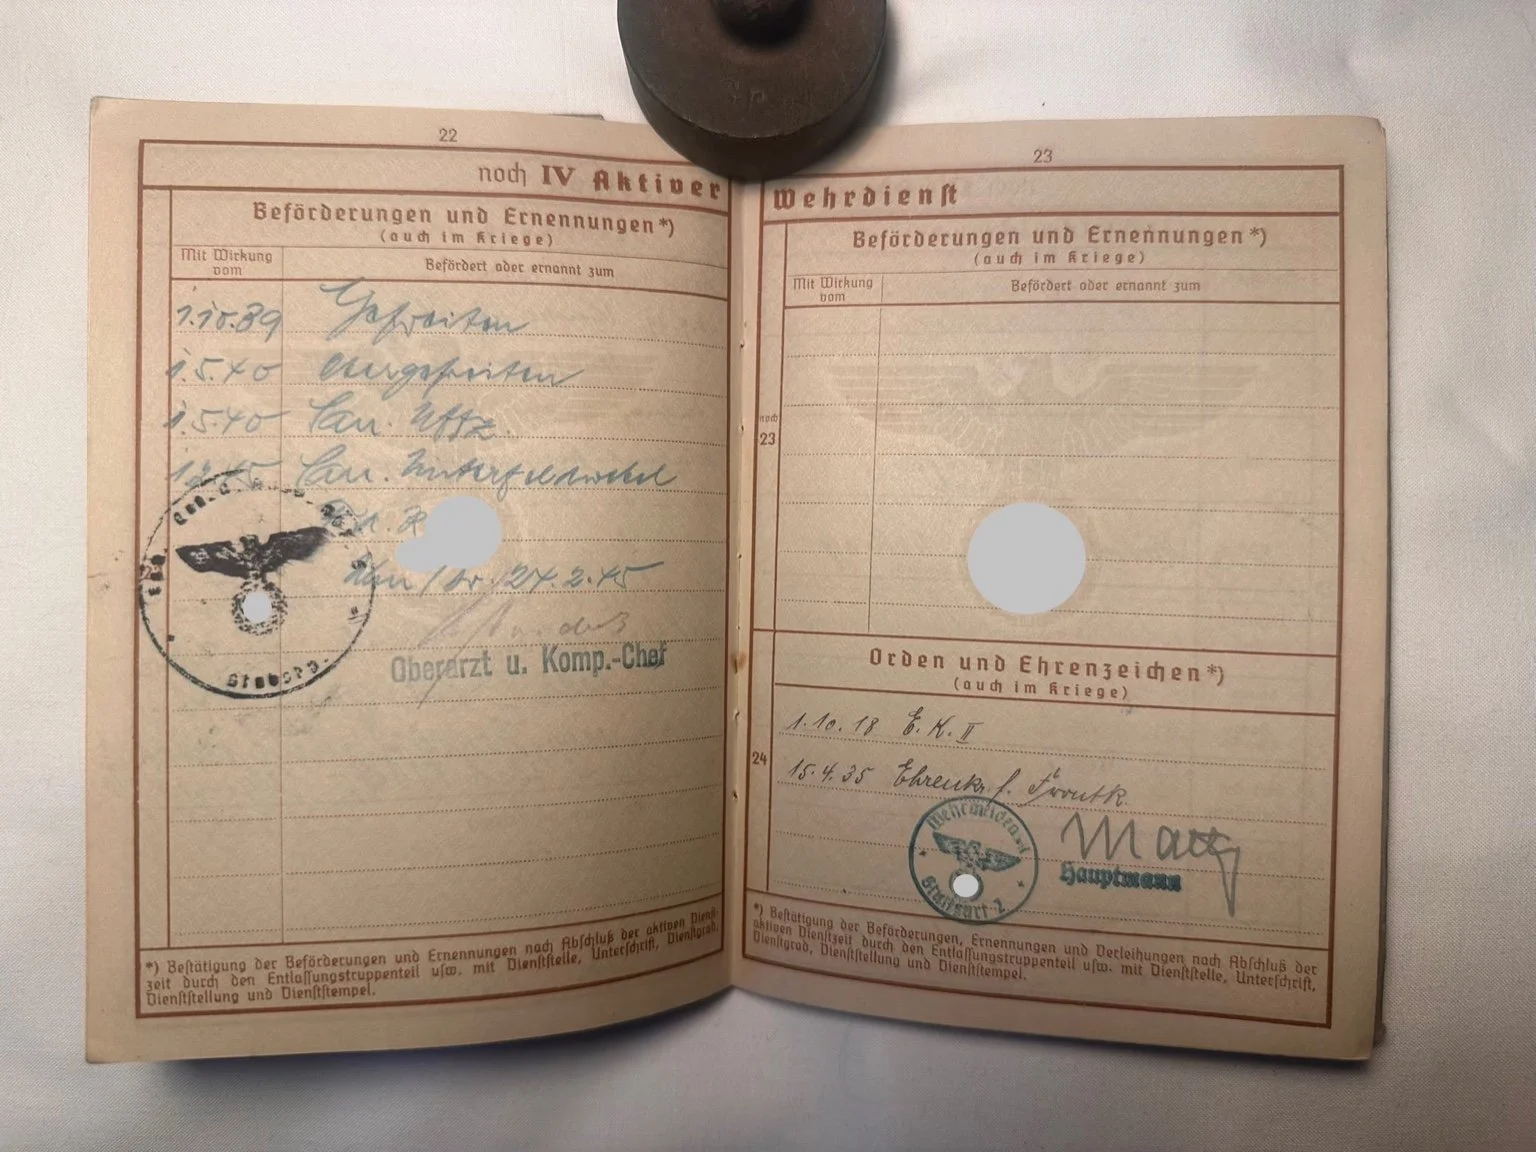 22
noch IV Aktiver
Beförderungen und Ernennungen*)
(auch im Kriege)
Mit Wirkung vom
Befördert oder ernannt zum
1.10.39 Gefreiten
1.5.40 Obergefreiten
1.5.40 San. Uffz.
San. Unterfeldwebel
24.2.45
Oberarzt u. Komp.-Chef
*) Bestätigung der Beförderungen und Ernennungen nach Abschluß der aktiven Dienst-
zeit durch den Entlassungstruppenteil usw. mit Dienststelle, Unterschrift, Dienstgrad,
Dienststellung und Dienststempel.
23
Wehrdienst
Beförderungen und Ernennungen*)
(auch im Kriege)
Mit Wirkung vom
Befördert oder ernannt zum
noch
23
Orden und Ehrenzeichen*)
(auch im Kriege)
24
1.10.18 E.K. II
15.4.35 Ehrenkr. f. Frontk.
Hauptmann
*) Bestätigung der Beförderungen, Ernennungen und Verleihungen nach Abschluß der
aktiven Dienstzeit durch den Entlassungstruppenteil usw. mit Dienststelle, Unterschrift,
Dienstgrad, Dienststellung und Dienststempel.